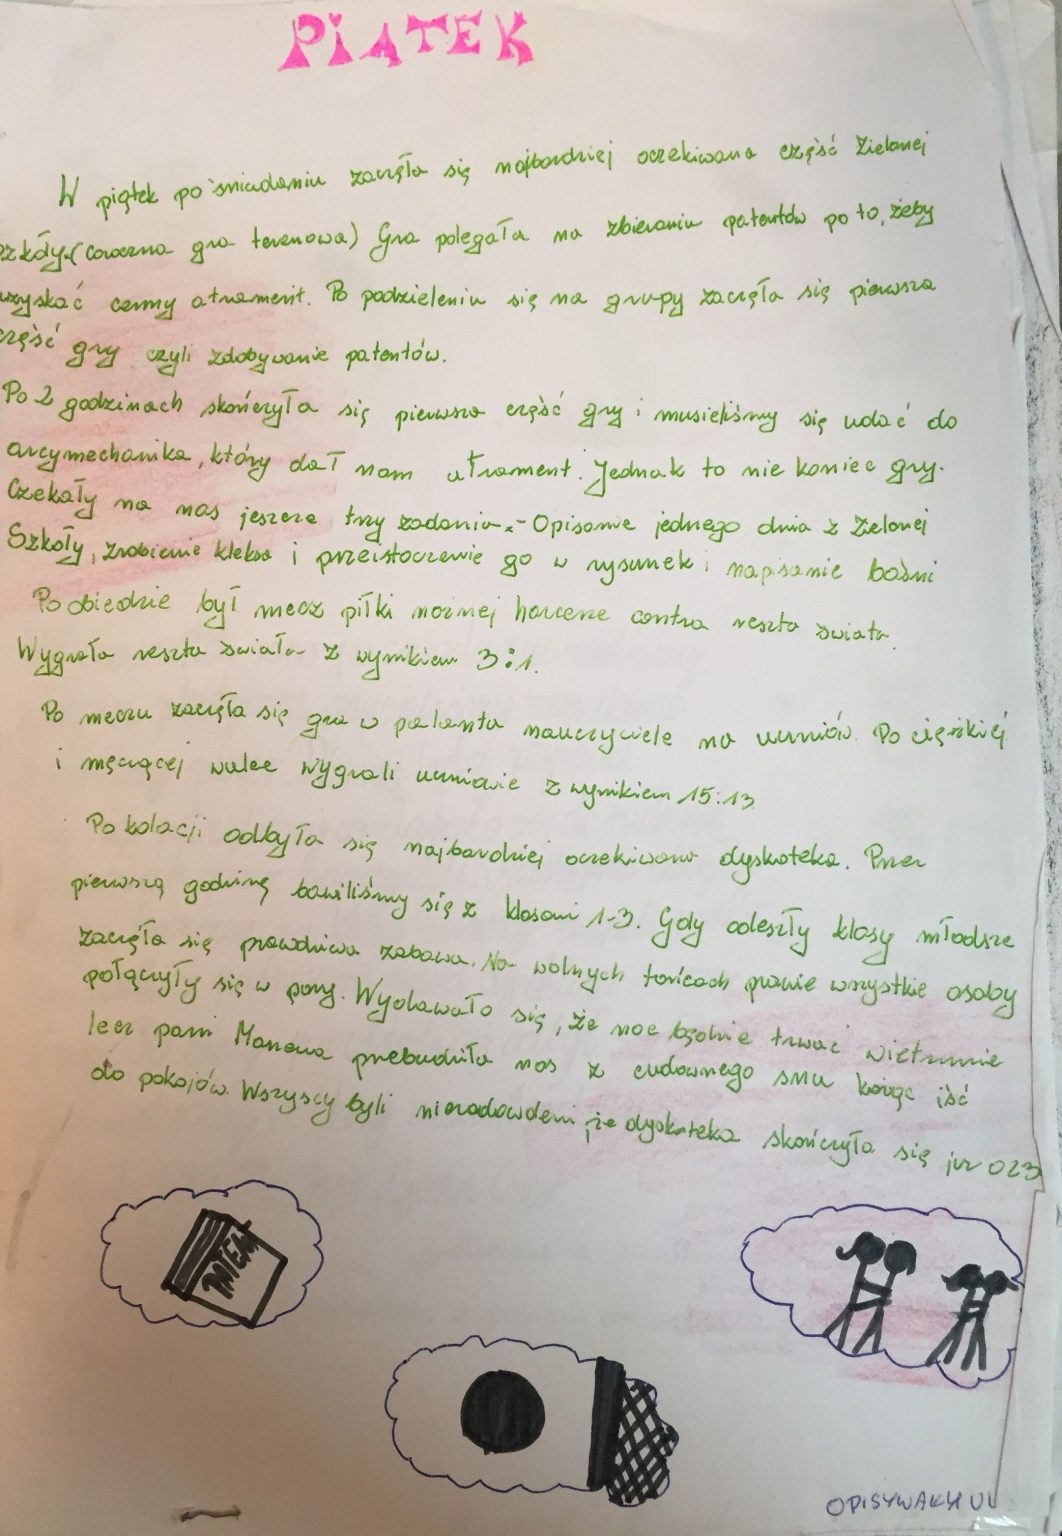 PIĄTEK
W piątek po śniadaniu zaczęła się najbardziej oczekiwana część Zielonej
szkoły (coroczna gra terenowa) Gra polegała na zbieraniu patentów po to, żeby
uzyskać czarny atrament. Po podzieleniu się na grupy zaczęła się pierwsza
część gry czyli zdobywanie patentów.
Po 2 godzinach skończyła się pierwsza część gry i musieliśmy się udać do
arcymechanika, który dał nam atrament. Jednak to nie koniec gry.
Czekały na nas jeszcze trzy zadania - Opisanie jednego dnia z Zielonej
Szkoły, zrobienie kleksa i przeistoczenie go w rysunek i napisanie baśni
Po obiedzie był mecz piłki nożnej harcerze contra reszta świata.
Wygrała reszta świata z wynikiem 3:1.
Po meczu zaczęła się gra w palanta nauczyciele na uczniów. Po ciężkiej
i męczącej walce wygrali uczniowie z wynikiem 15:13
Po kolacji odbyła się najbardziej oczekiwana dyskoteka. Przez
pierwszą godzinę bawiliśmy się z klasami 1-3. Gdy odeszły klasy młodsze
zaczęła się prawdziwa zabawa. Na wolnych tańcach prawie wszystkie osoby
połączyły się w pary. Wydawało się, że noc będzie trwać wiecznie
lecz pani przebudziła nas z cudownego snu każąc iść
do pokojów. Wszyscy byli niezadowoleni że dyskoteka skończyła się już o 23
PATENT